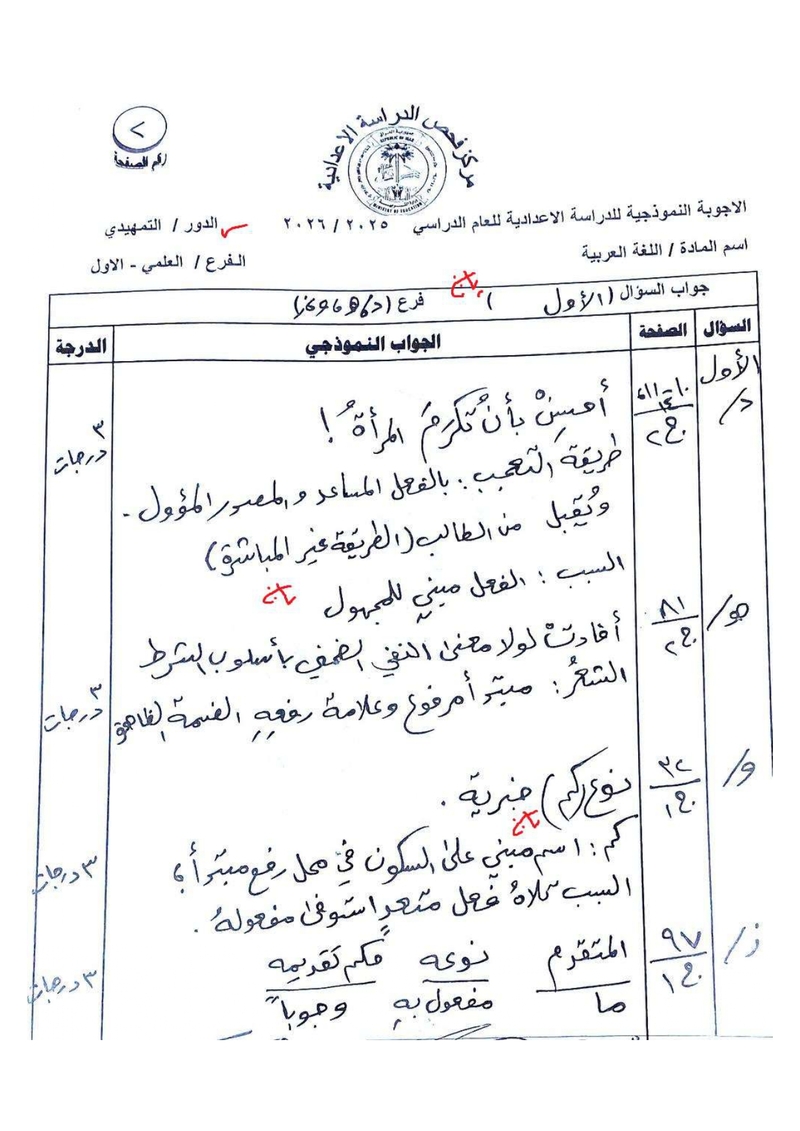 ٢
رقم الصفحة
مركز فحص الدراسة الاعدادية
الاجوبة النموذجية للدراسة الاعدادية للعام الدراسي ٢٠٢٥ / ٢٠٢٦
الدور / التمهيدي
اسم المادة / اللغة العربية
الفرع / العلمي - الاول
جواب السؤال (الأول) فرع (د، هـ، و، ز)
السؤال الصفحة الجواب النموذجي الدرجة
الأول
د/ ١٠-١١، ١٤ ج٢ أحسِنْ بأنْ تُكرَمَ المرأةُ! ٣ درجات
طريقة التعجب: بالفعل المساعد والمصدر المؤول.
ويُقبل من الطالب (الطريقة غير المباشرة)
السبب: الفعل مبني للمجهول
هـ/ ٨١ ج٢ أفادتْ لولا معنى النفي الضمني بأسلوب الشرط
الشعرُ: مبتدأ مرفوع وعلامة رفعهِ الضمة الظاهرة ٣ درجات
و/ ٣٢ ج١ نوع (كم) خبرية.
كم: اسم مبني على السكون في محل رفع مبتدأ؛ ٣ درجات
السبب تلاهُ فعل متعدٍ استوفى مفعولهُ.
ز/ ٩٧ ج١ المتقدم نوعه حكم تقديمه ٣ درجات
ما مفعول بهِ وجوباً